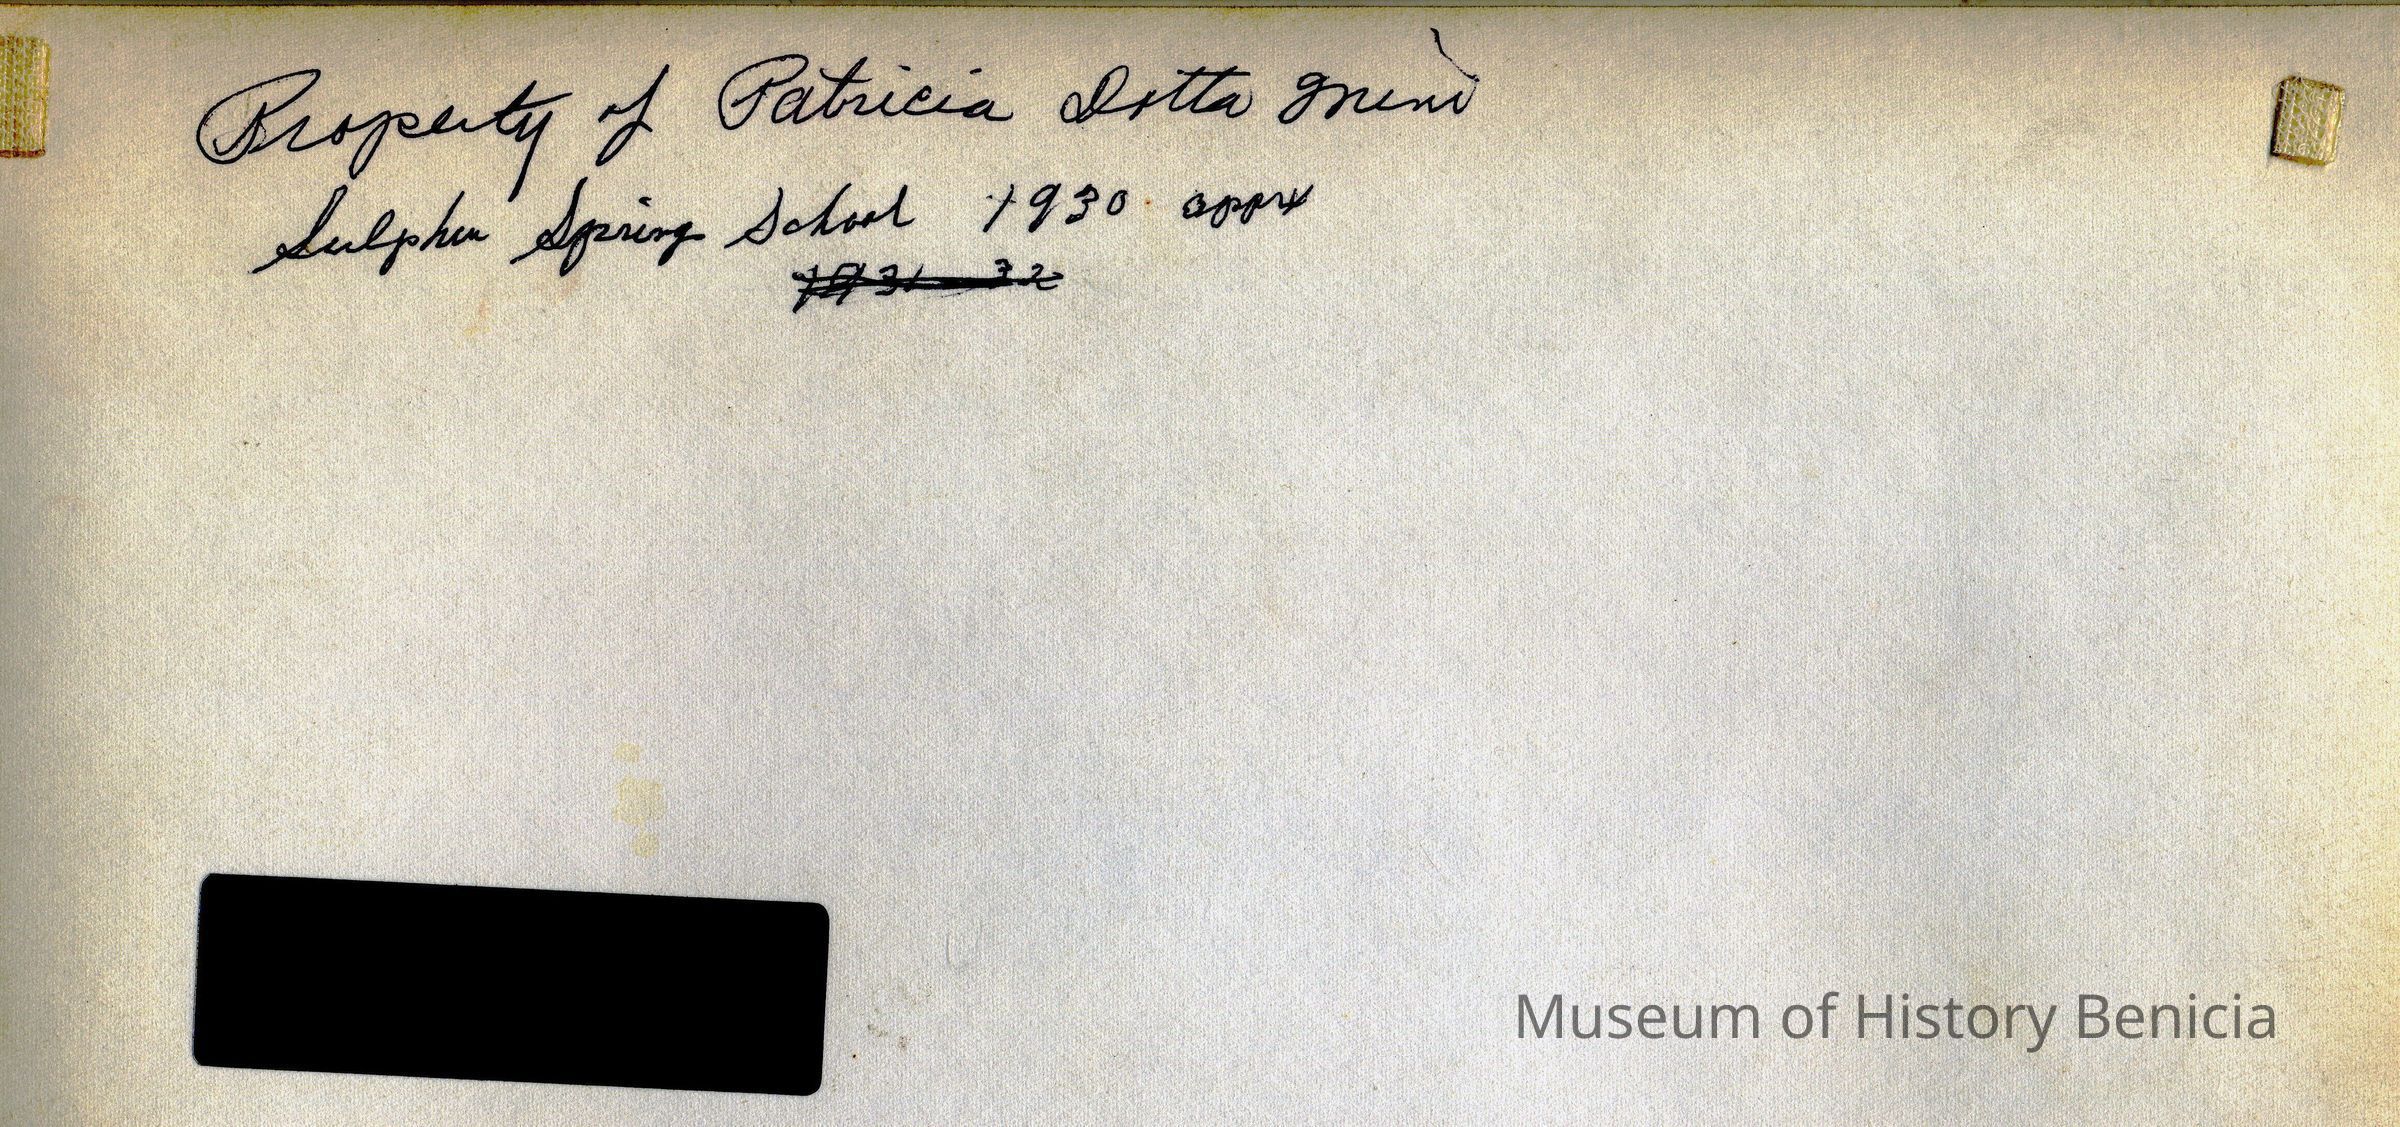 Property of Patricia Dotta
Sulphur Spring School 1930 apprx
1931-32
Museum of History Benicia